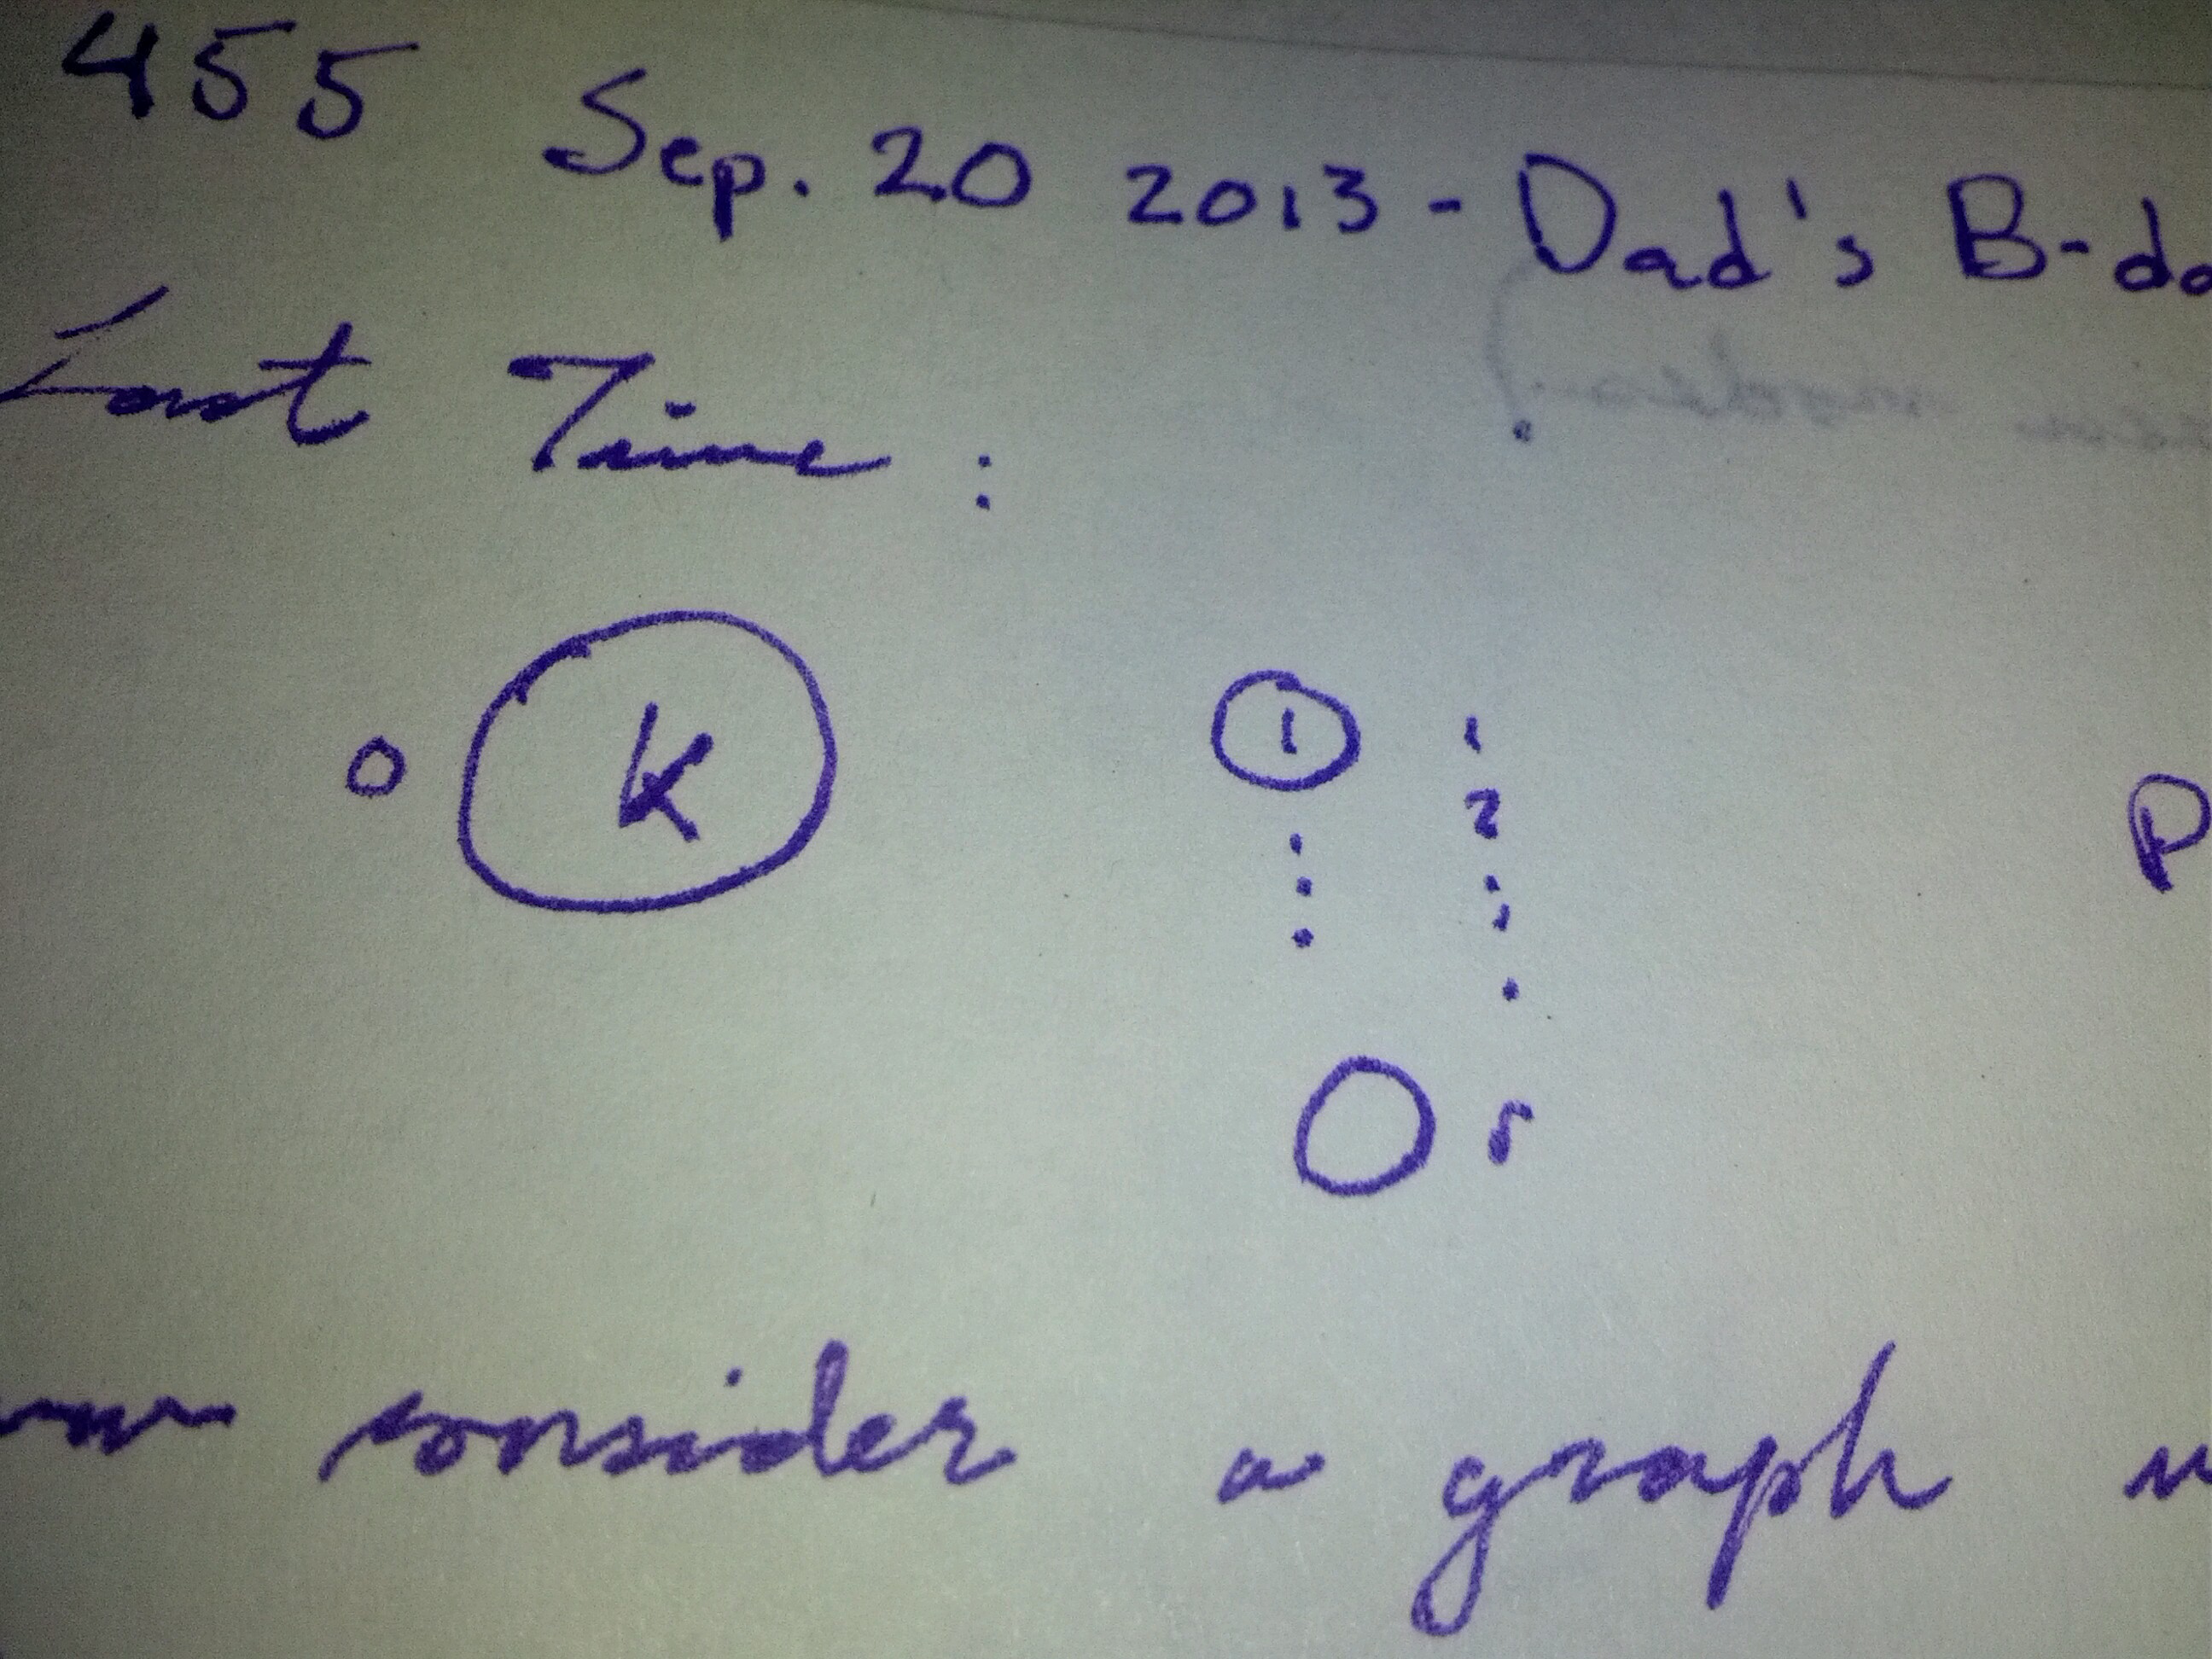 455 Sep. 20 2013 - Dad's B-da
Last Time :
0 K 1 1
2 P
r
consider a graph